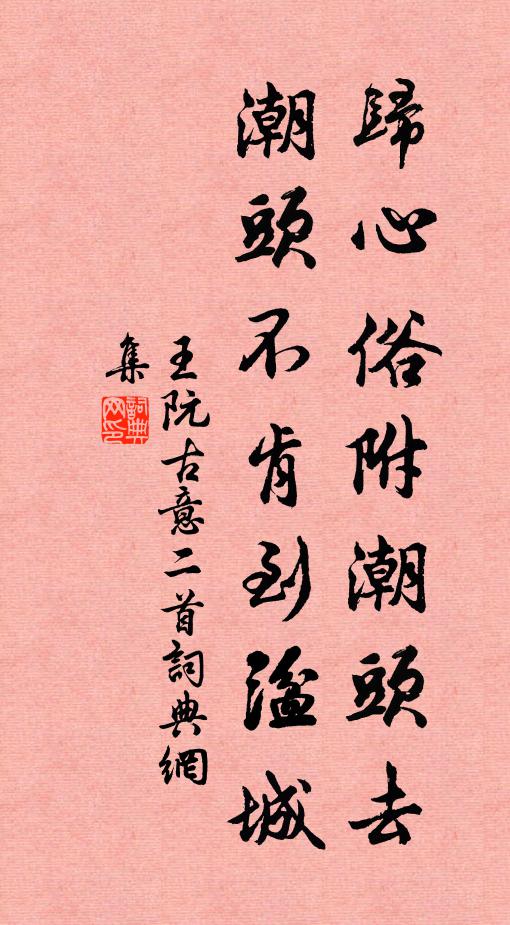 歸心俗附潮頭去
潮頭不肯到湓城
王阮古意二首詞典網
集
詞典網印